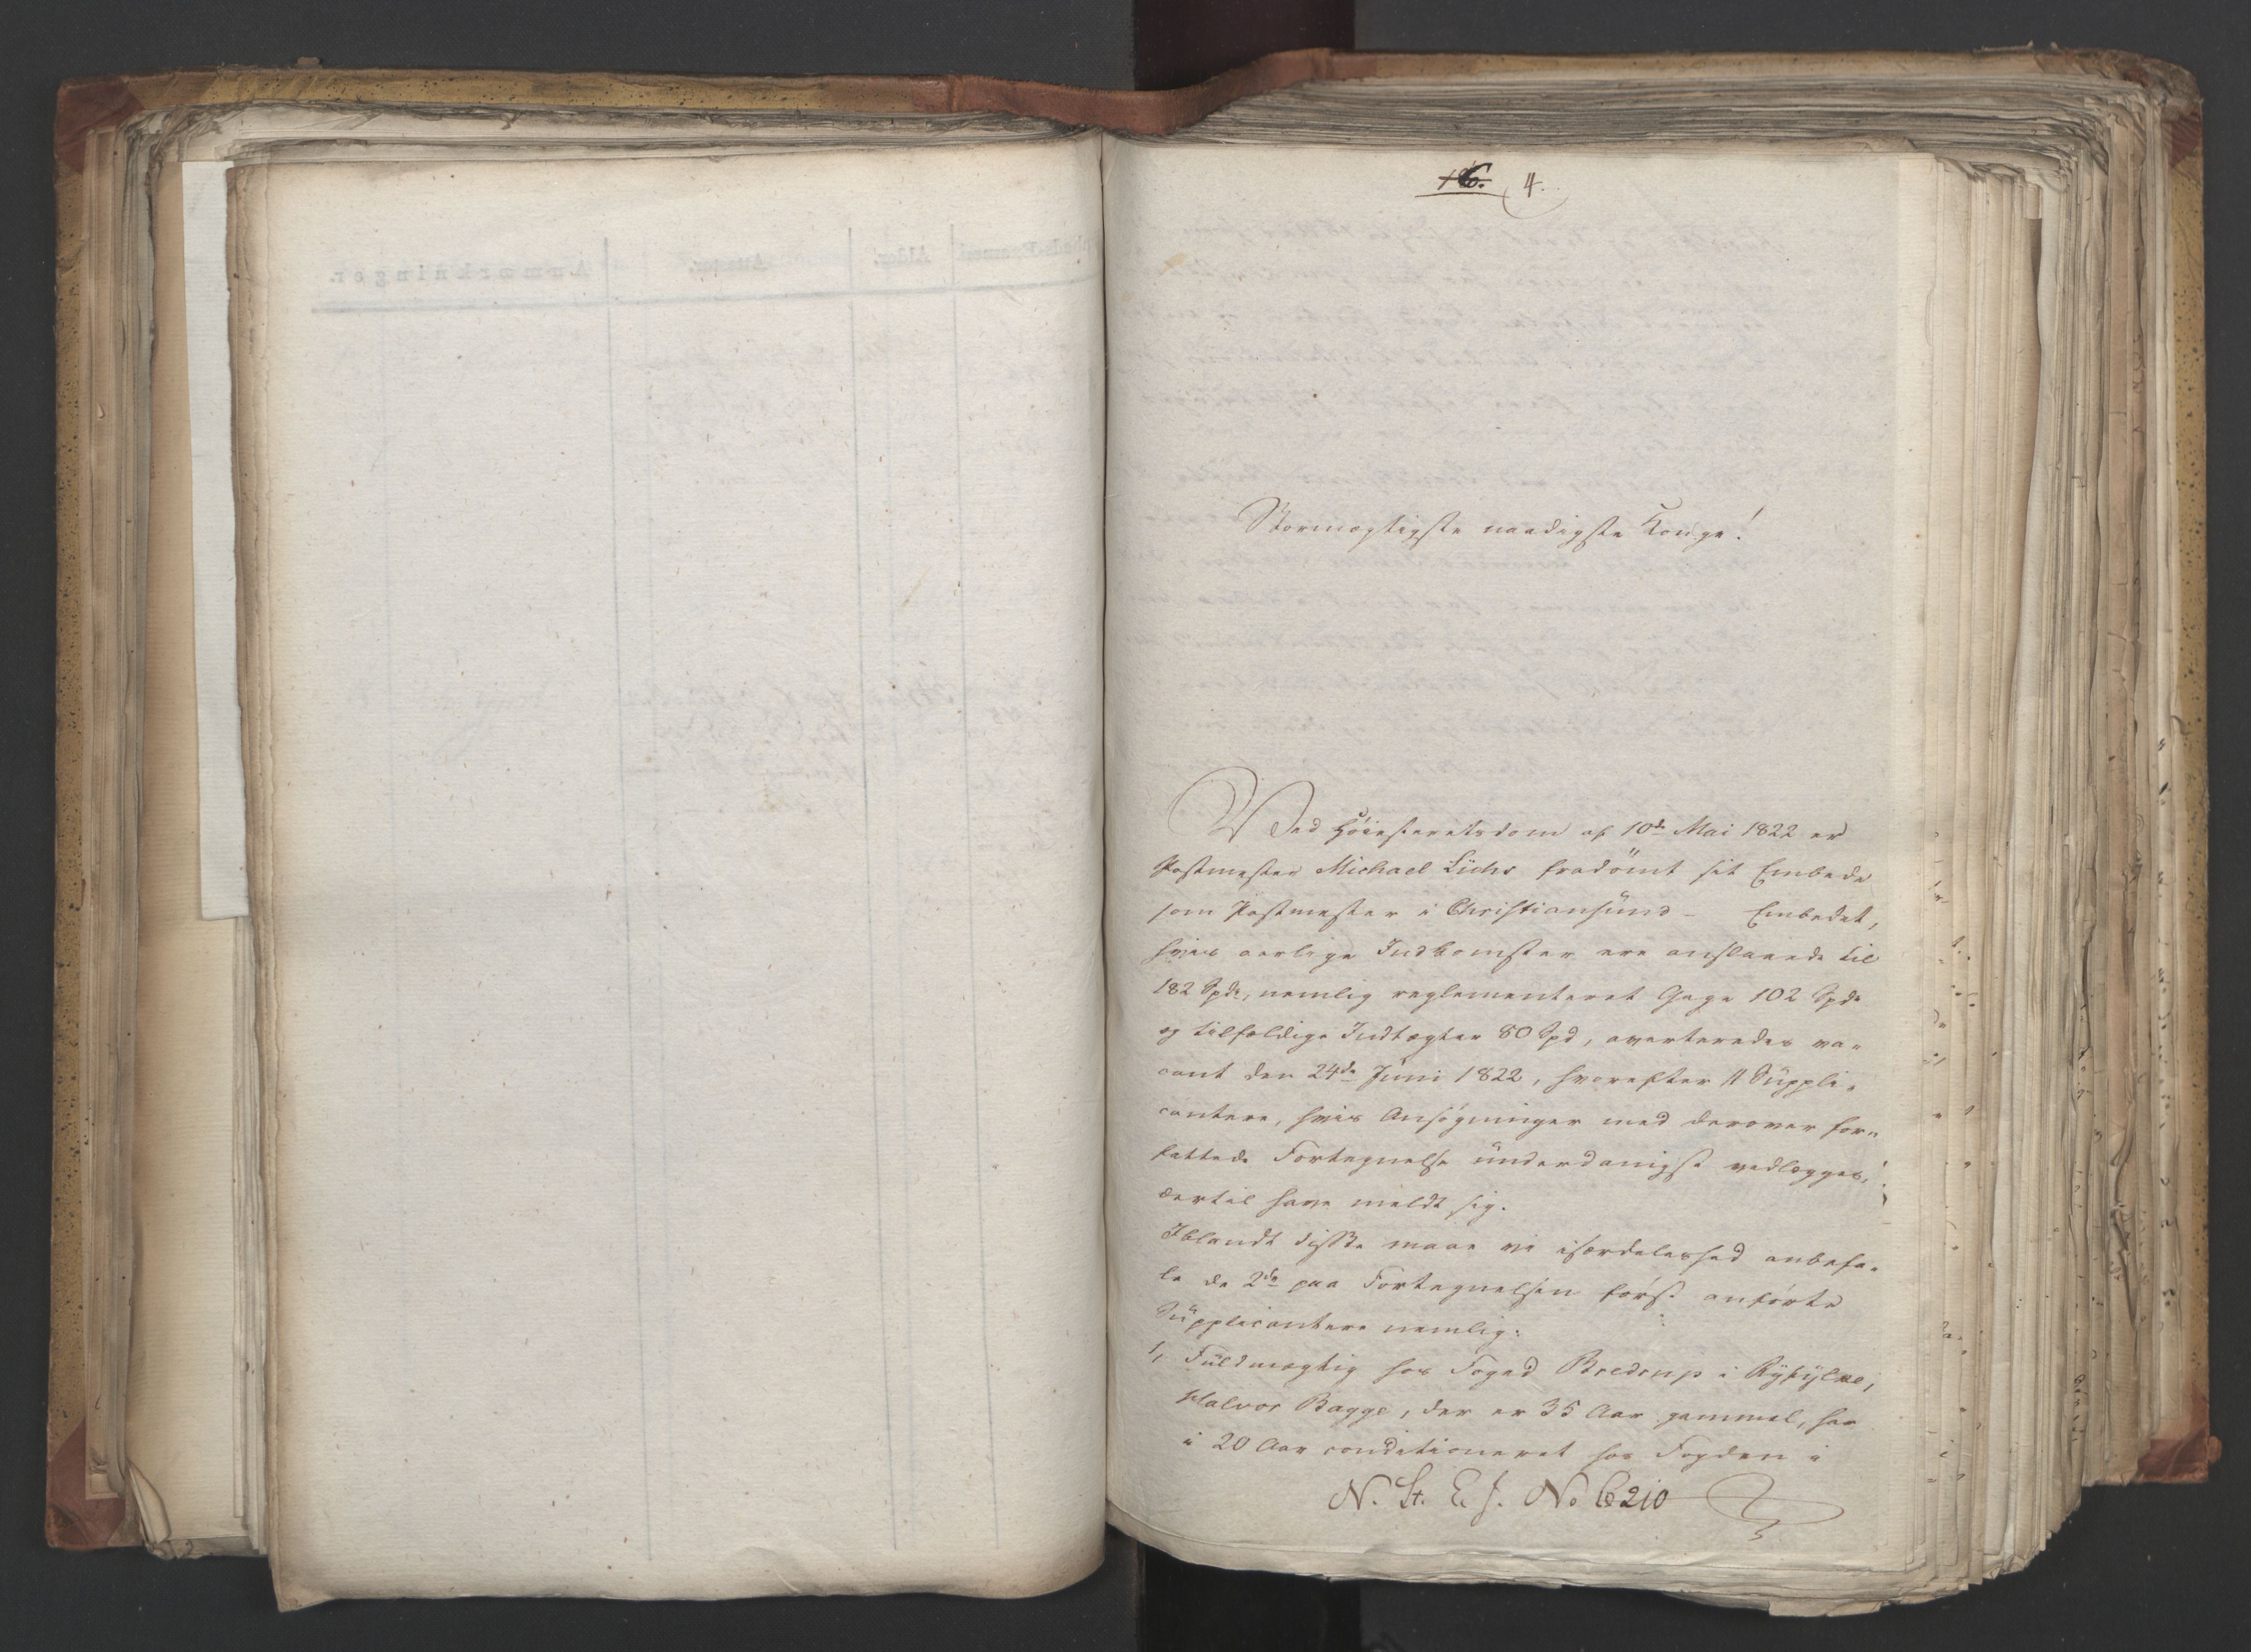 16. 4.
Stormægtigste naadigste Konge!
Ved Höiesteretsdom af 10de Mai 1822 er
Postmester Michael Lühr fradömt sit Embede
som Postmester i Christiansund – Embedet,
hvis aarlige Indkomster ere anslaaede til
182 Spd, nemlig reglementeret Gage 102 Spd
og tilfældige Indtægter 80 Spd, averteredes va-
cant den 24de Juni 1822, hvorefter 11 Suppli-
cantere, hvis Ansögninger med derover for-
fattede Fortegnelse underdanigst vedlægges,
dertil have meldt sig.
Iblandt disse maae vi isærdeleshed anbefa-
le de 2de paa Fortegnelsen först anförte
Supplicantere nemlig:
1, Fuldmægtig hos Foged Bredrup i Ryfylke,
Halvor Bagge, der er 35 Aar gammel, har
i 20 Aar conditioneret hos Fogden i
N. St. E. J. No 6210
Anmærkninger.
Attester.
Alder.